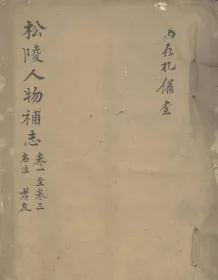 松陵人物補志
卷一至卷三
名臣 孝友
内有札備查